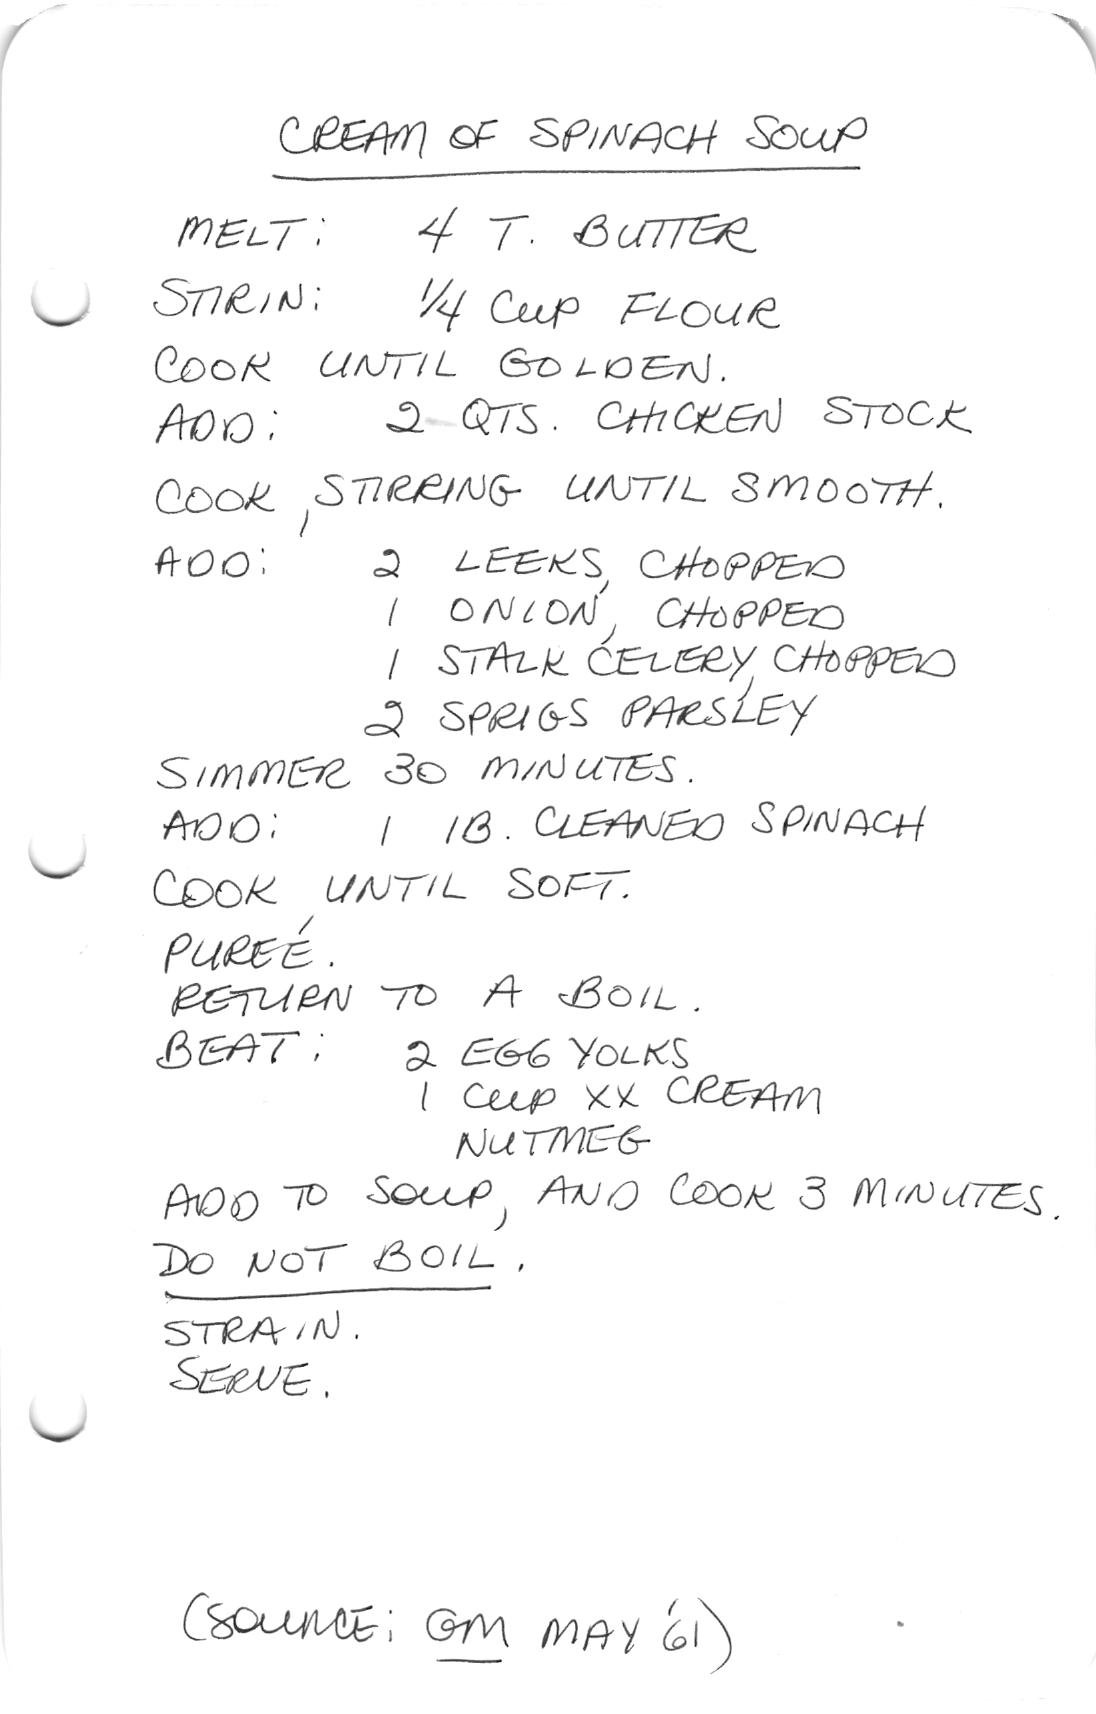 CREAM OF SPINACH SOUP
MELT: 4 T. BUTTER
STIR IN: 1/4 CUP FLOUR
COOK UNTIL GOLDEN.
ADD: 2 QTS. CHICKEN STOCK
COOK, STIRRING UNTIL SMOOTH.
ADD: 2 LEEKS, CHOPPED
1 ONION, CHOPPED
1 STALK CELERY, CHOPPED
2 SPRIGS PARSLEY
SIMMER 30 MINUTES.
ADD: 1 lB. CLEANED SPINACH
COOK UNTIL SOFT.
PUREÉ.
RETURN TO A BOIL.
BEAT: 2 EGG YOLKS
1 CUP XX CREAM
NUTMEG
ADD TO SOUP, AND COOK 3 MINUTES.
DO NOT BOIL.
STRAIN.
SERVE.
(SOURCE: GM MAY '61)